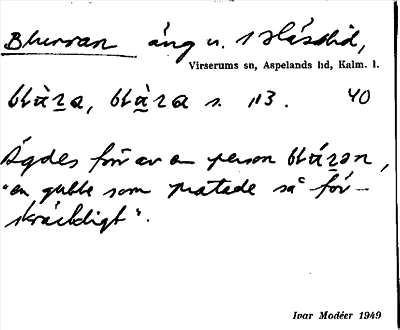 Blurran äng u. 1 Hässlid,
Virserums sn, Aspelands hd, Kalm. l.
s. 113. 40
Ägdes förr av en person
"en gubbe som pratade så för-
skräckligt".
Ivar Modéer 1949